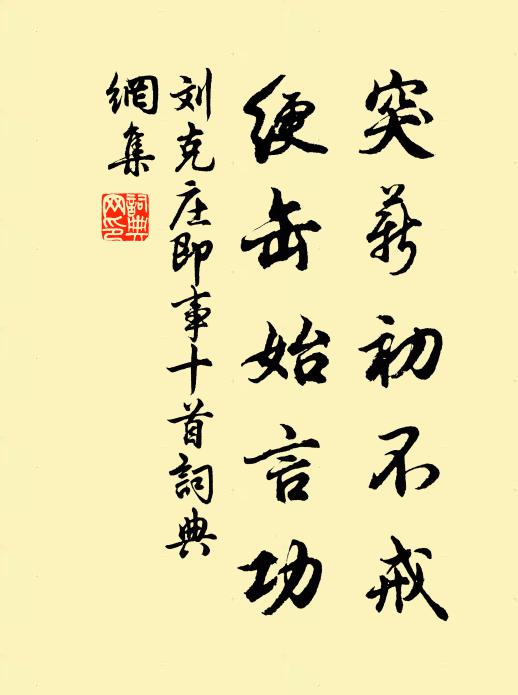 突薪初不戒
绠缶始言功
刘克庄即事十首詞典
網集
詞典
网印